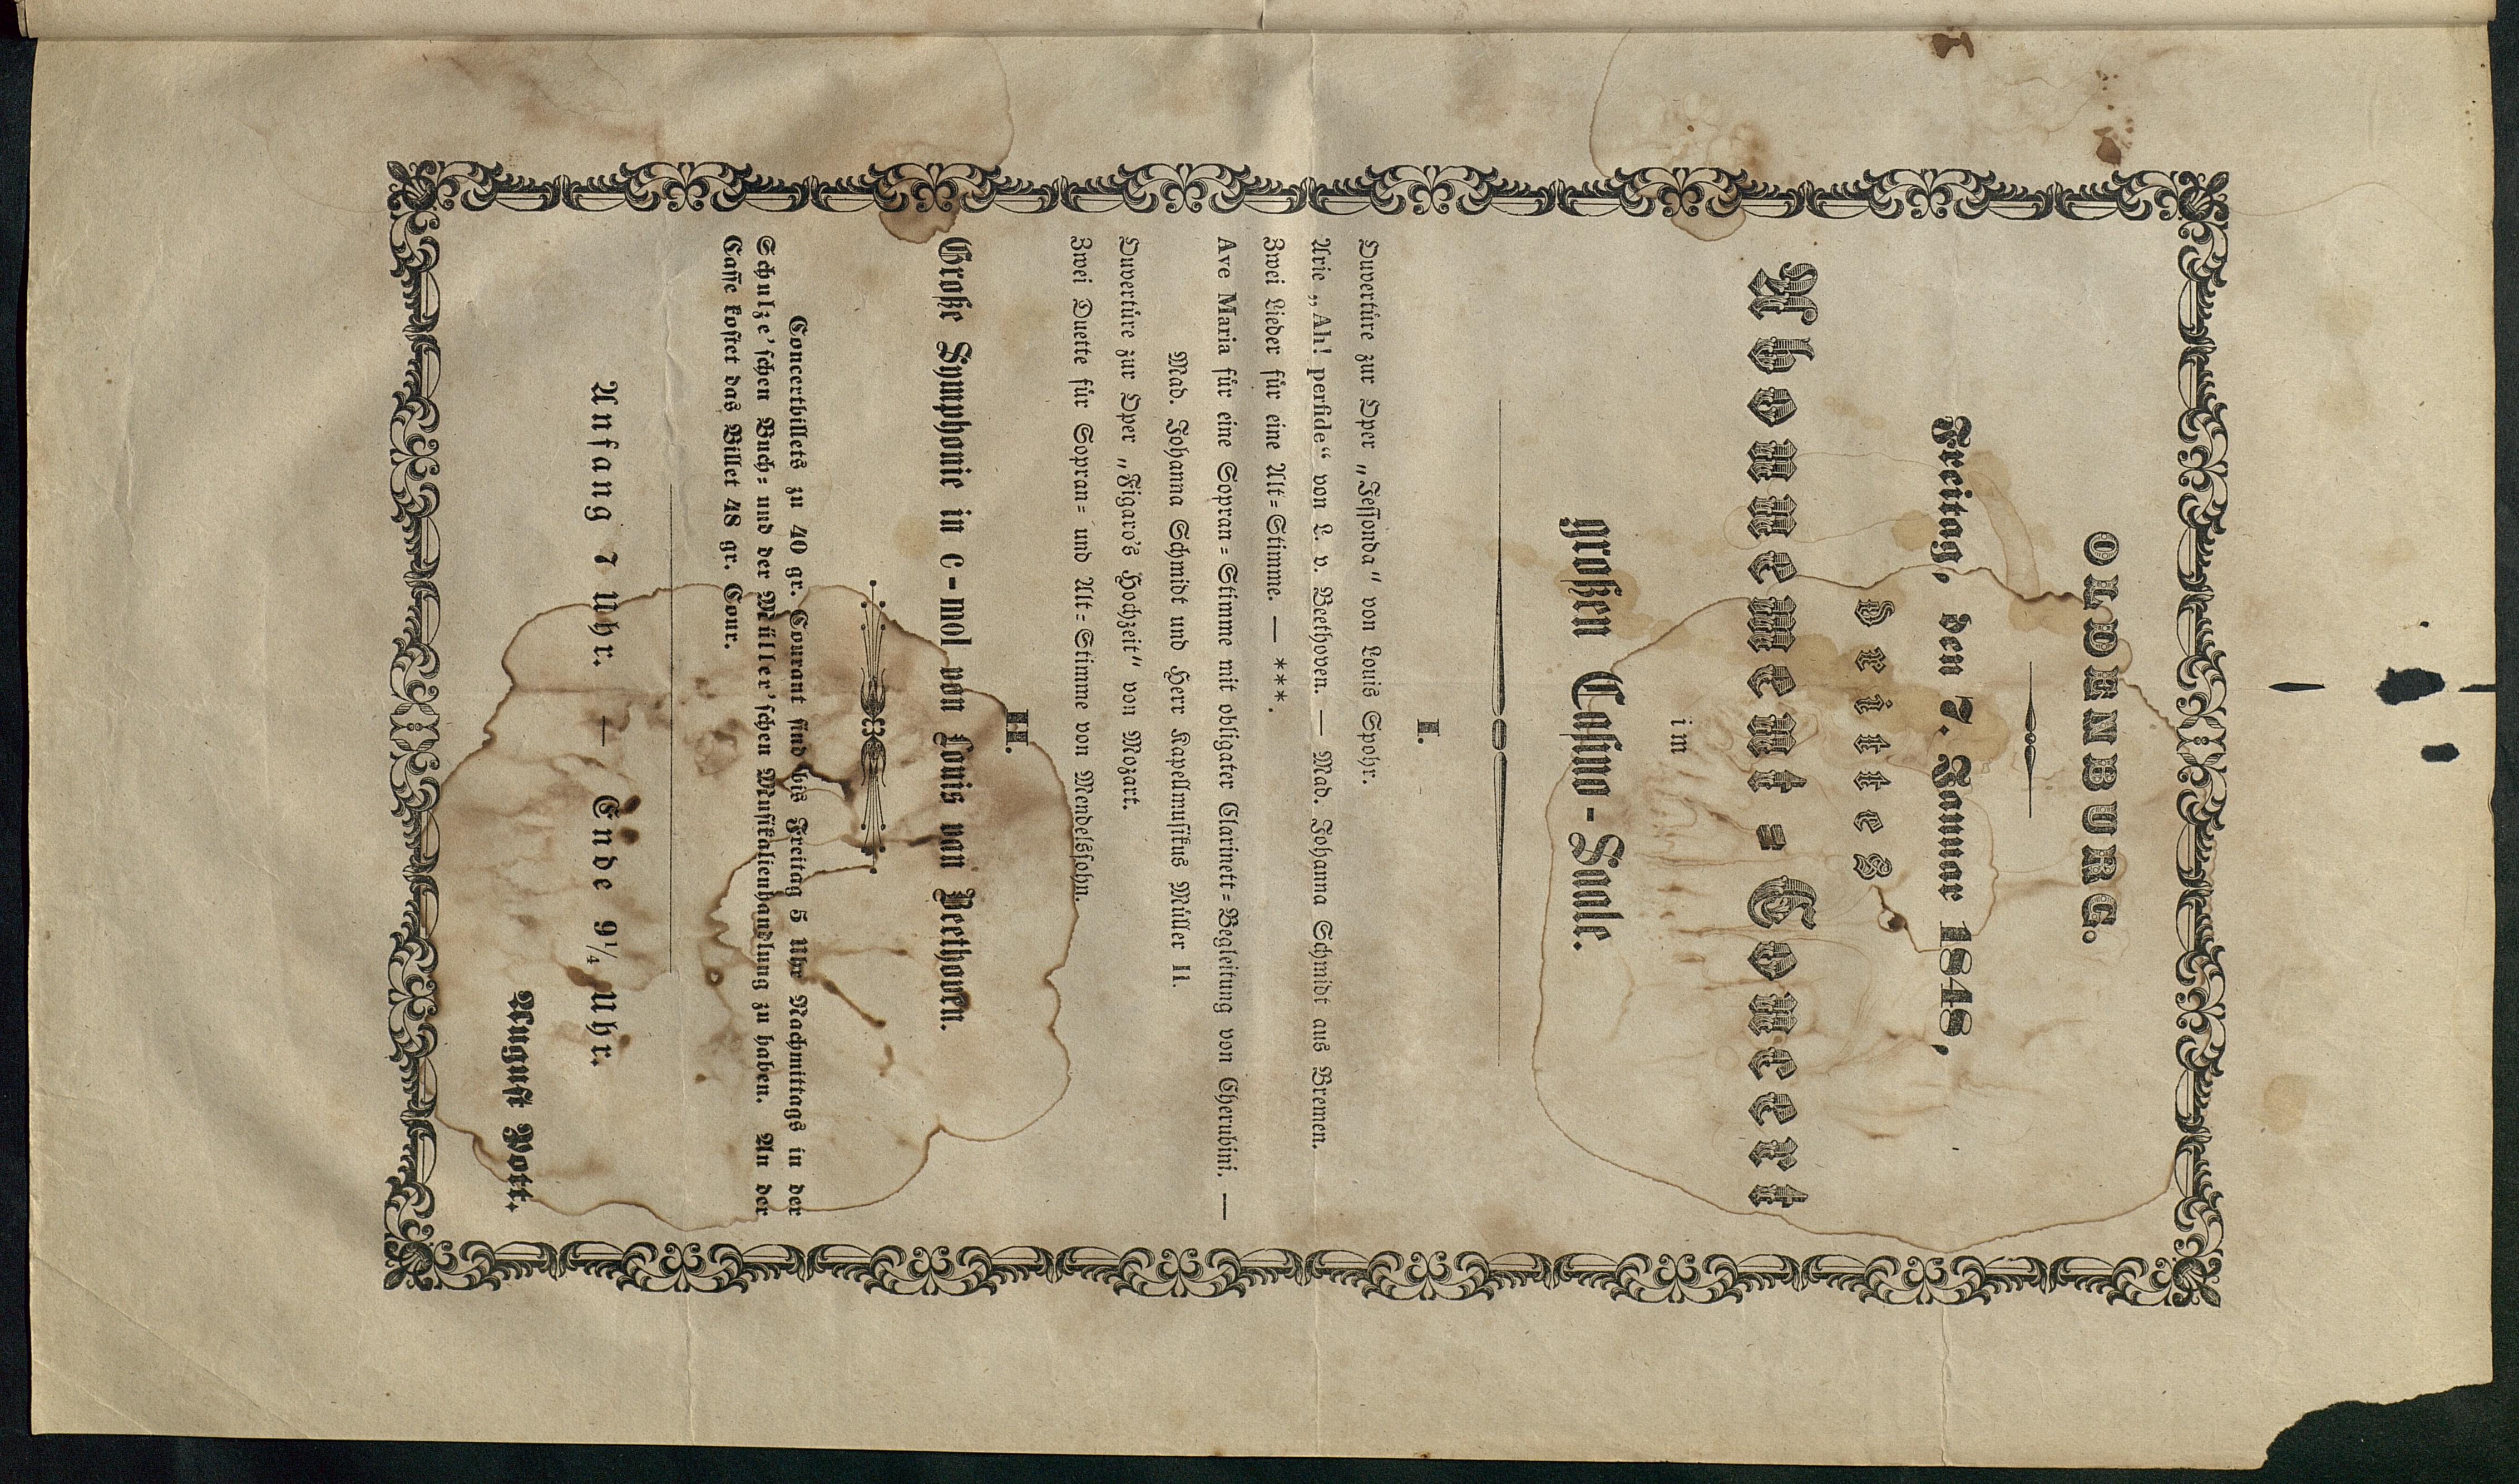 OLDENBURG.
Freitag, den 7. Januar 1848,
Drittes
Abonnement-Concert
im
großen Casino-Saale.
I.
Ouvertüre zur Oper „Jessonda“ von Louis Spohr.
Arie „Ah! perfide“ von L. v. Bethoven. — Mad. Johanna Schmidt aus Bremen.
Zwei Lieder für eine Alt-Stimme. — ***.
Ave Maria für eine Sopran-Stimme mit obligater Clarinett-Begleitung von Cherubini. —
Mad. Johanna Schmidt und Herr Kapellmusikus Müller II.
Ouvertüre zur Oper „Figaro's Hochzeit“ von Mozart.
Zwei Duette für Sopran- und Alt-Stimme von Mendelssohn.
II.
Große Symphonie in c-mol von Louis van Beethoven.
Concertbillets zu 40 gr. Courant sind bis Freitag 5 Uhr Nachmittags in der
Schulze'schen Buch- und der Müller'schen Musikalienhandlung zu haben. An der
Casse kostet das Billet 48 gr. Cour.
Anfang 7 Uhr. — Ende 9¼ Uhr.
August Pott.